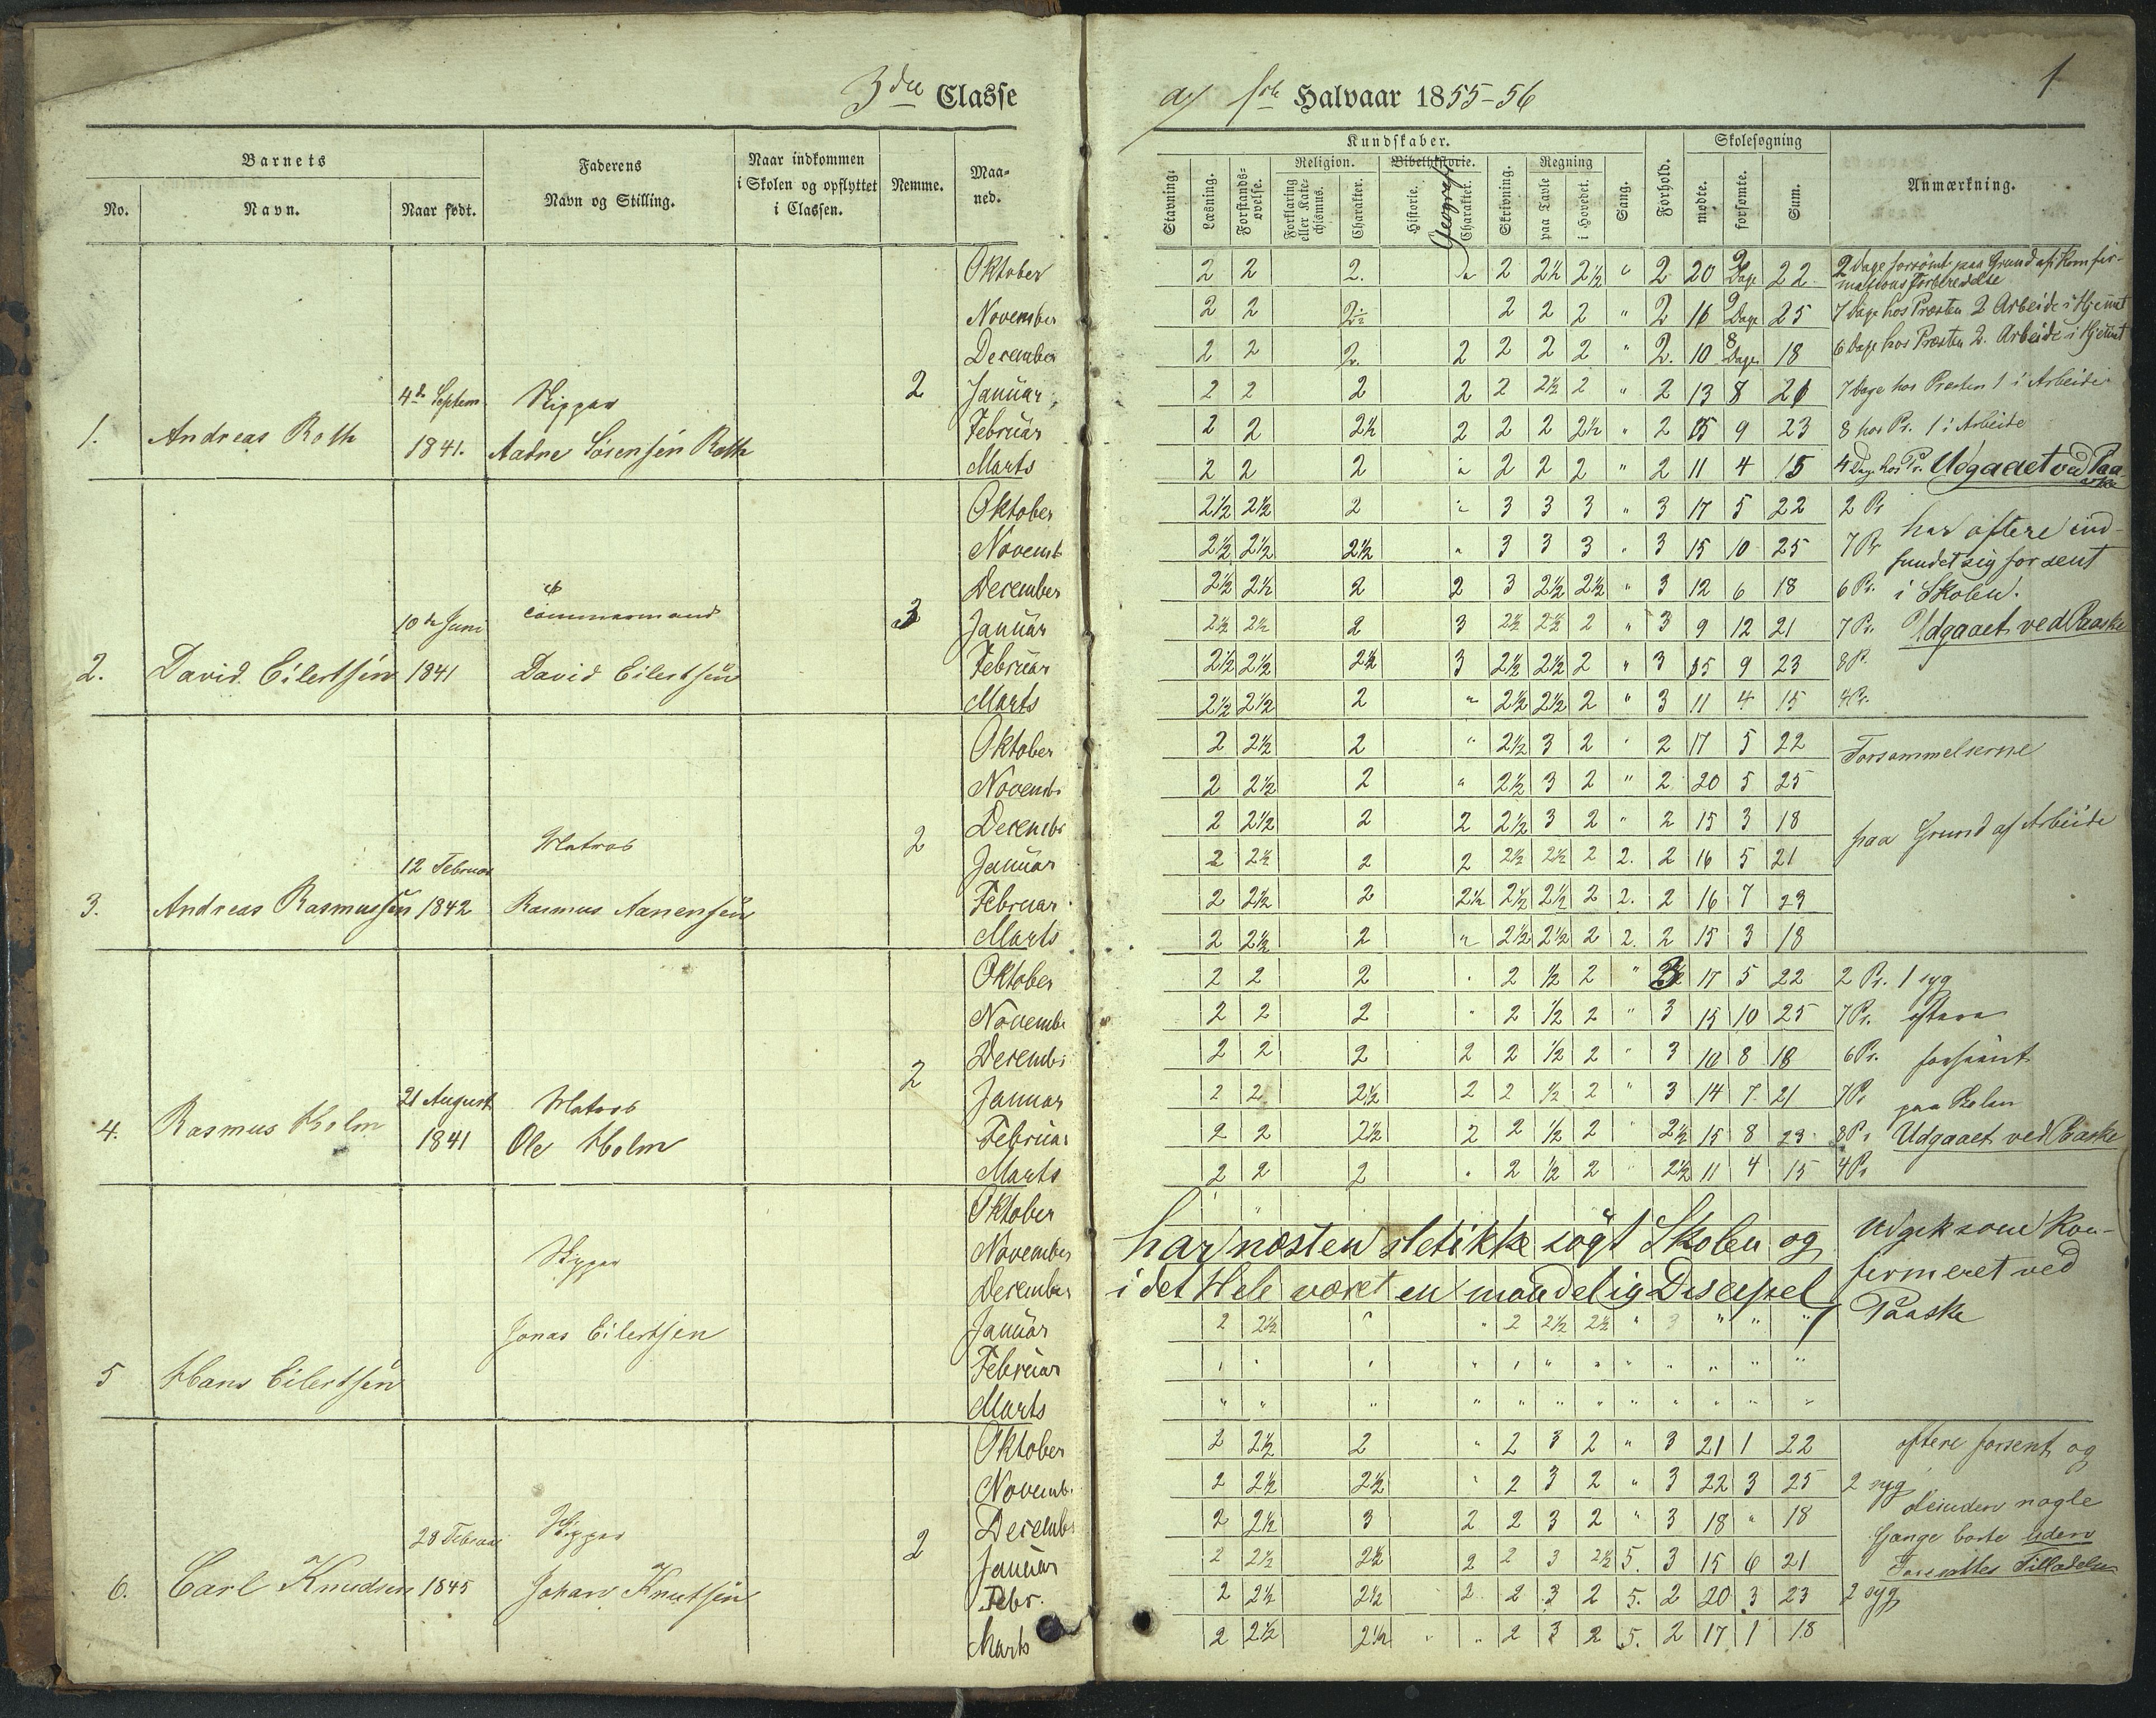 3die Classe
a/ 1ste Halvaar 1855-56
1
Barnets
No.
Navn.
Naar født.
Faderens
Navn og Stilling.
Naar indkommen
i Skolen og opflyttet
i Classen.
Nemme.
Maaned.
Kundskaber.
Stavning.
Læsning.
Forstandsøvelse.
Religion.
Forklaring eller Katechismus.
Charakter.
Bibelhistorie.
Historie.
Geografi
Charakter.
Skrivning.
Regning
paa Tavle
i Hovedet.
Sang.
Forhold.
Skolesøgning
mødte.
forsømte.
Sum.
Anmærkning.
1. Andreas Roth
4de Septem. 1841.
Skipper
Aadne Sörensen Roth
2
Oktober 2 2 2. " 2 2½ 2½ " 2 20 2 Dage 22 2 Dage forsömt paa Grund af Konfirmationsforberedelse
November 2 2 2 2 2 2 " 2 16 9 Dage 25 7 Dage hos Præsten 2 Arbeide i Hjemmet
December 2 2 2. 2 2 2 2 " 2. 10 8 Dage 18 6 Dage hos Præsten 2. Arbeide i Hjemmet
Januar 2 2 2 2 2 2½ 2 " 2 13 8 21 7 Dage hos Præsten 1 i Arbeide
Februar 2 2 2½ 2 2 2 2½ " 2 15 9 23 8 hos Pr. 1 i Arbeide
Marts 2 2 2 " 2 2 2 " 2 11 4 15 4 Dage hos Pr. Udgaaet ved Paaske
2. David Eilertsen
10de Juni 1841
Tömmermand
David Eilertsen
3
Oktober 2½ 2½ 2 " 3 3 3 " 3 17 5 22 2 Pr
Novemb 2½ 2½ 2½ " 3 3 3 " 3 15 10 25 7 Pr
December 2½ 2½ 2 2 3 2½ 2½ " 3 12 6 18 6 Pr.
Januar 2½ 2½ 2 3 2½ 2½ 2 " 3 9 12 21 7 Pr.
Februar 2½ 2½ 2½ 3 2½ 2½ 2 " 3 15 9 23 8 P.
Marts 2½ 2½ 2 " 2½ 2½ 2 " 3 11 4 15 4 Pr.
har oftere indfundet sig for sent
i Skolen.
Udgaaet ved Paaske
3. Andreas Rasmussen
12 Februar 1842
Matros
Rasmus Aanensen
2
Oktober 2 2½ 2 " 2½ 3 2 " 2 17 5 22
Novemb. 2 2½ 2 " 2½ 3 2 " 2 20 5 25
Decemb. 2 2½ 2 2 2½ 3 2 " 2 15 3 18
Januar 2 2½ 2 2 2½ 2½ 2 2. 2 16 5 21
Februar 2 2½ 2 2½ 2½ 2½ 2 2. 2 16 7 23
Marts 2 2½ 2 " 2½ 2½ 2 2. 2 15 3 18
Forsømmelserne
paa Grund af Arbeide
4. Rasmus Holm
21 August 1841
Matros
Ole Holm
2
Oktober 2 2 2 " 2 ½ 2 " 3 17 5 22 2 Pr. 1 syg
Novemb. 2 2 2 " 2 ½ 2 " 3 15 10 25 7 Pr. oftere
Decemb. 2 2 2 2 2 ½ 2 " 3 10 8 18 6 Pr. forsömt
Januar 2 2 2½ 2 2 ½ 2 " 3 14 7 21 7 Pr paa Skolen
Februar 2 2 2½ 2 2 ½ 2 " 2½ 15 8 23 8 Pr Udgaaet ved Paaske
Marts 2 2 2 " 2 ½ 2 " 2½ 11 4 15 4 Pr
5 Hans Eilertsen
Skipper
Jonas Eilertsen
Oktober
November
December
Januar 2 2½ " " 2 2½ 2½ " 3 " " "
Februar " " " " " " " " " " " "
Marts " " " " " " " " " " " "
har næsten slet ikke sögt Skolen og
i det Hele været en maadelig Discipel
Udgik som Konfirmeret ved
Paaske
6. Carl Knudsen
28 Februar 1845
Skipper
Johan Knutsen
2
Oktober 2 2½ 2 " 2 3 2 " 3 21 1 22
Novemb. 2 2½ 2½ " 2 3 2 " 3 22 3 25 2 syg
Decemb 2 2½ 3 2 2 3 2 " 3 18 " 18
Januar 2 2½ 2½ 2 2 3 2½ 5. 3 15 6 21
Febr. 2 2½ 2½ 2 2 3 2 5. 2 20 3 23 2 syg
Marts 2 2½ 2½ " 2 3 2 5. 2 17 1 18
oftere forsent og
desuden nogle
Gange borte uden
Foresattes Tilladelse